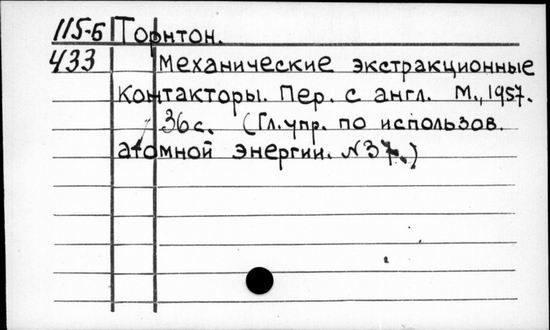 115-6 Торнтон.
433 Механические экстракционные
контакторы. Пер. с англ. М., 1957.
36с. (Гл.упр. по использов.
атомной энергии. №37.)